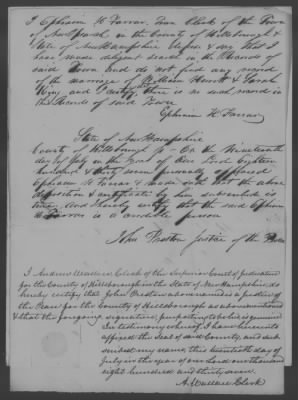 I Ephraim H Farrar, Town Clerk of the Town
of New Ipswich in the County of Hillsborough &
State of New Hampshire depose & say that I
have made diligent search in the Records of
said Town and do not find any record
of the marriage of William Hewitt & Sarah
and I certify there is no such record in
the Records of said Town
Ephraim H. Farrar
State of New Hampshire
County of Hillsborough ss - On the Nineteenth
day of July in the year of our Lord Eighteen
hundred & thirty seven personally appeared
Ephraim H Farrar & made oath that the above
deposition & certificate by him subscribed is
true, And I hereby certify that the said Ephraim
H Farrar is a credible person
John Preston Justice of the Peace
I Andrew Wallace Clerk of the Superior Court of Judicature
for the County of Hillsborough in the State of New Hampshire, do
hereby certify that John Preston above named is a justice of
the Peace for the County of Hillsborough as above mentioned
& that the foregoing signature, purporting to be his is genuine
In testimony whereof I have hereunto
affixed the Seal of said County, and sub
scribed my name, this twentieth day of
July in the year of our Lord one thousand
eight hundred and thirty seven
A. Wallace Clerk